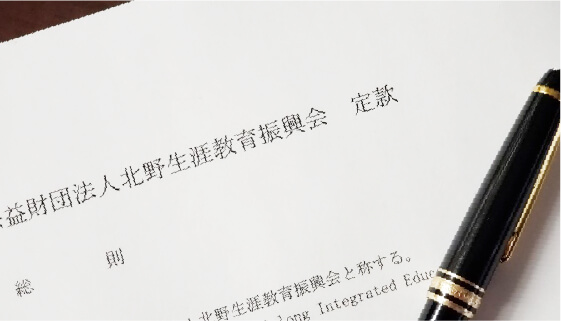 益財団法人北野生涯教育振興会　定款
総　則
北野生涯教育振興会と称する。
long Integrated Educ